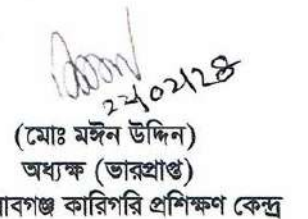 ২২/০২/২৪
(মোঃ মঈন উদ্দিন)
অধ্যক্ষ (ভারপ্রাপ্ত)
াবগঞ্জ কারিগরি প্রশিক্ষণ কেন্দ্র